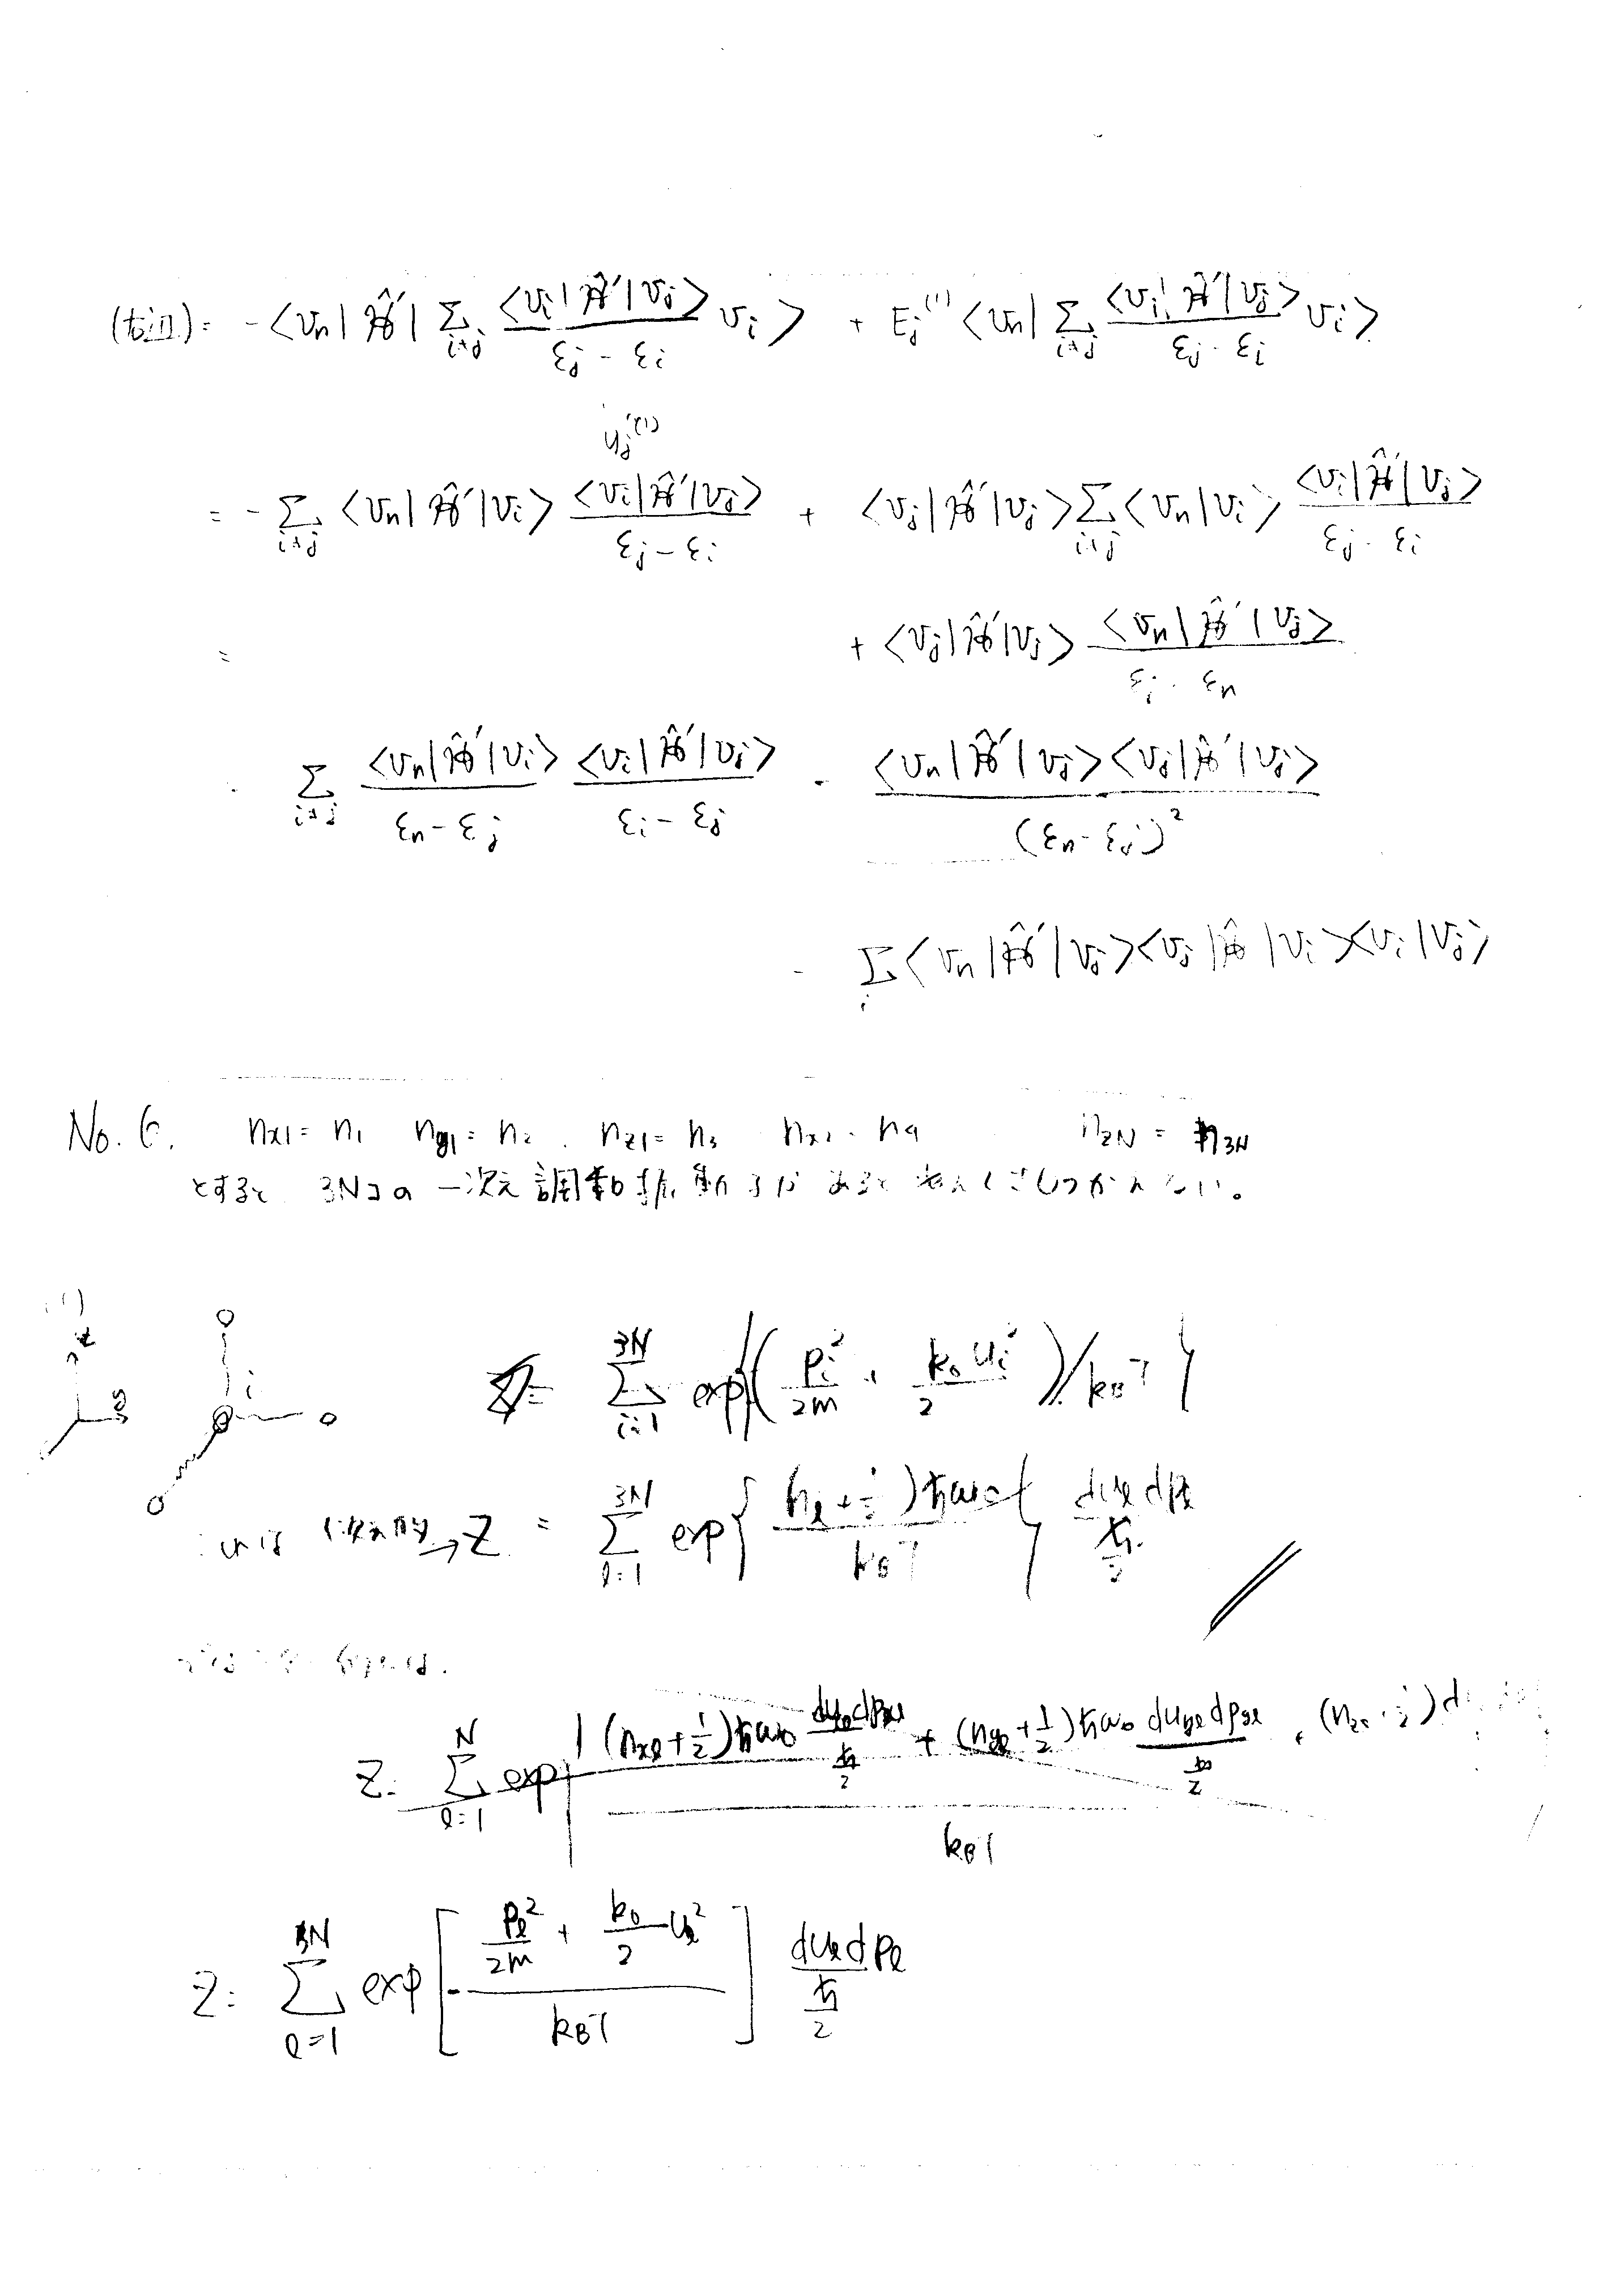 (右辺) = -<vn| Ĥ' | Σ_{i≠j} <vi|Ĥ'|vj> / (εj - εi) vi> + Ej^(1) <vn| Σ_{i≠j} <vi|Ĥ'|vj> / (εj - εi) vi>
uj'^(1)
= - Σ_{i≠j} <vn|Ĥ'|vi> <vi|Ĥ'|vj> / (εj - εi) + <vj|Ĥ'|vj> Σ_{i≠j} <vn|vi> <vi|Ĥ'|vj> / (εj - εi)
= + <vj|Ĥ'|vj> <vn|Ĥ'|vj> / (εj - εn)
Σ_{i≠j} <vn|Ĥ'|vi> / (εn - εj) <vi|Ĥ'|vj> / (εi - εj) - <vn|Ĥ'|vj><vj|Ĥ'|vj> / (εn - εj)^2
- Σ_i <vn|Ĥ'|vj><vj|Ĥ|vi><vi|vj>
No. 6. nx1 = n1 ny1 = n2 nz1 = n3 nx2 = n4 nzN = n3N
とすると 3Nコの 一次元調和振動子が あると考えてさしつかえない。
(1) z y i
Z = Σ_{i=1}^{3N} exp{(pi^2/2m + k0 ui^2/2)/kBT}
→ Z = Σ_{l=1}^{3N} exp{(nl + 1/2)ħω0 / kBT} dul dpl / (ħ/2)
Z = Σ_{l=1}^{N} exp{ (nxl + 1/2)ħω0 duxl dpxl/(ħ/2) + (nyl + 1/2)ħω0 duyl dpyl/(ħ/2)
kBT
Z = Σ_{l=1}^{3N} exp[ - (pl^2/2m + k0/2 ul^2) / kBT ] dul dpl / (ħ/2)